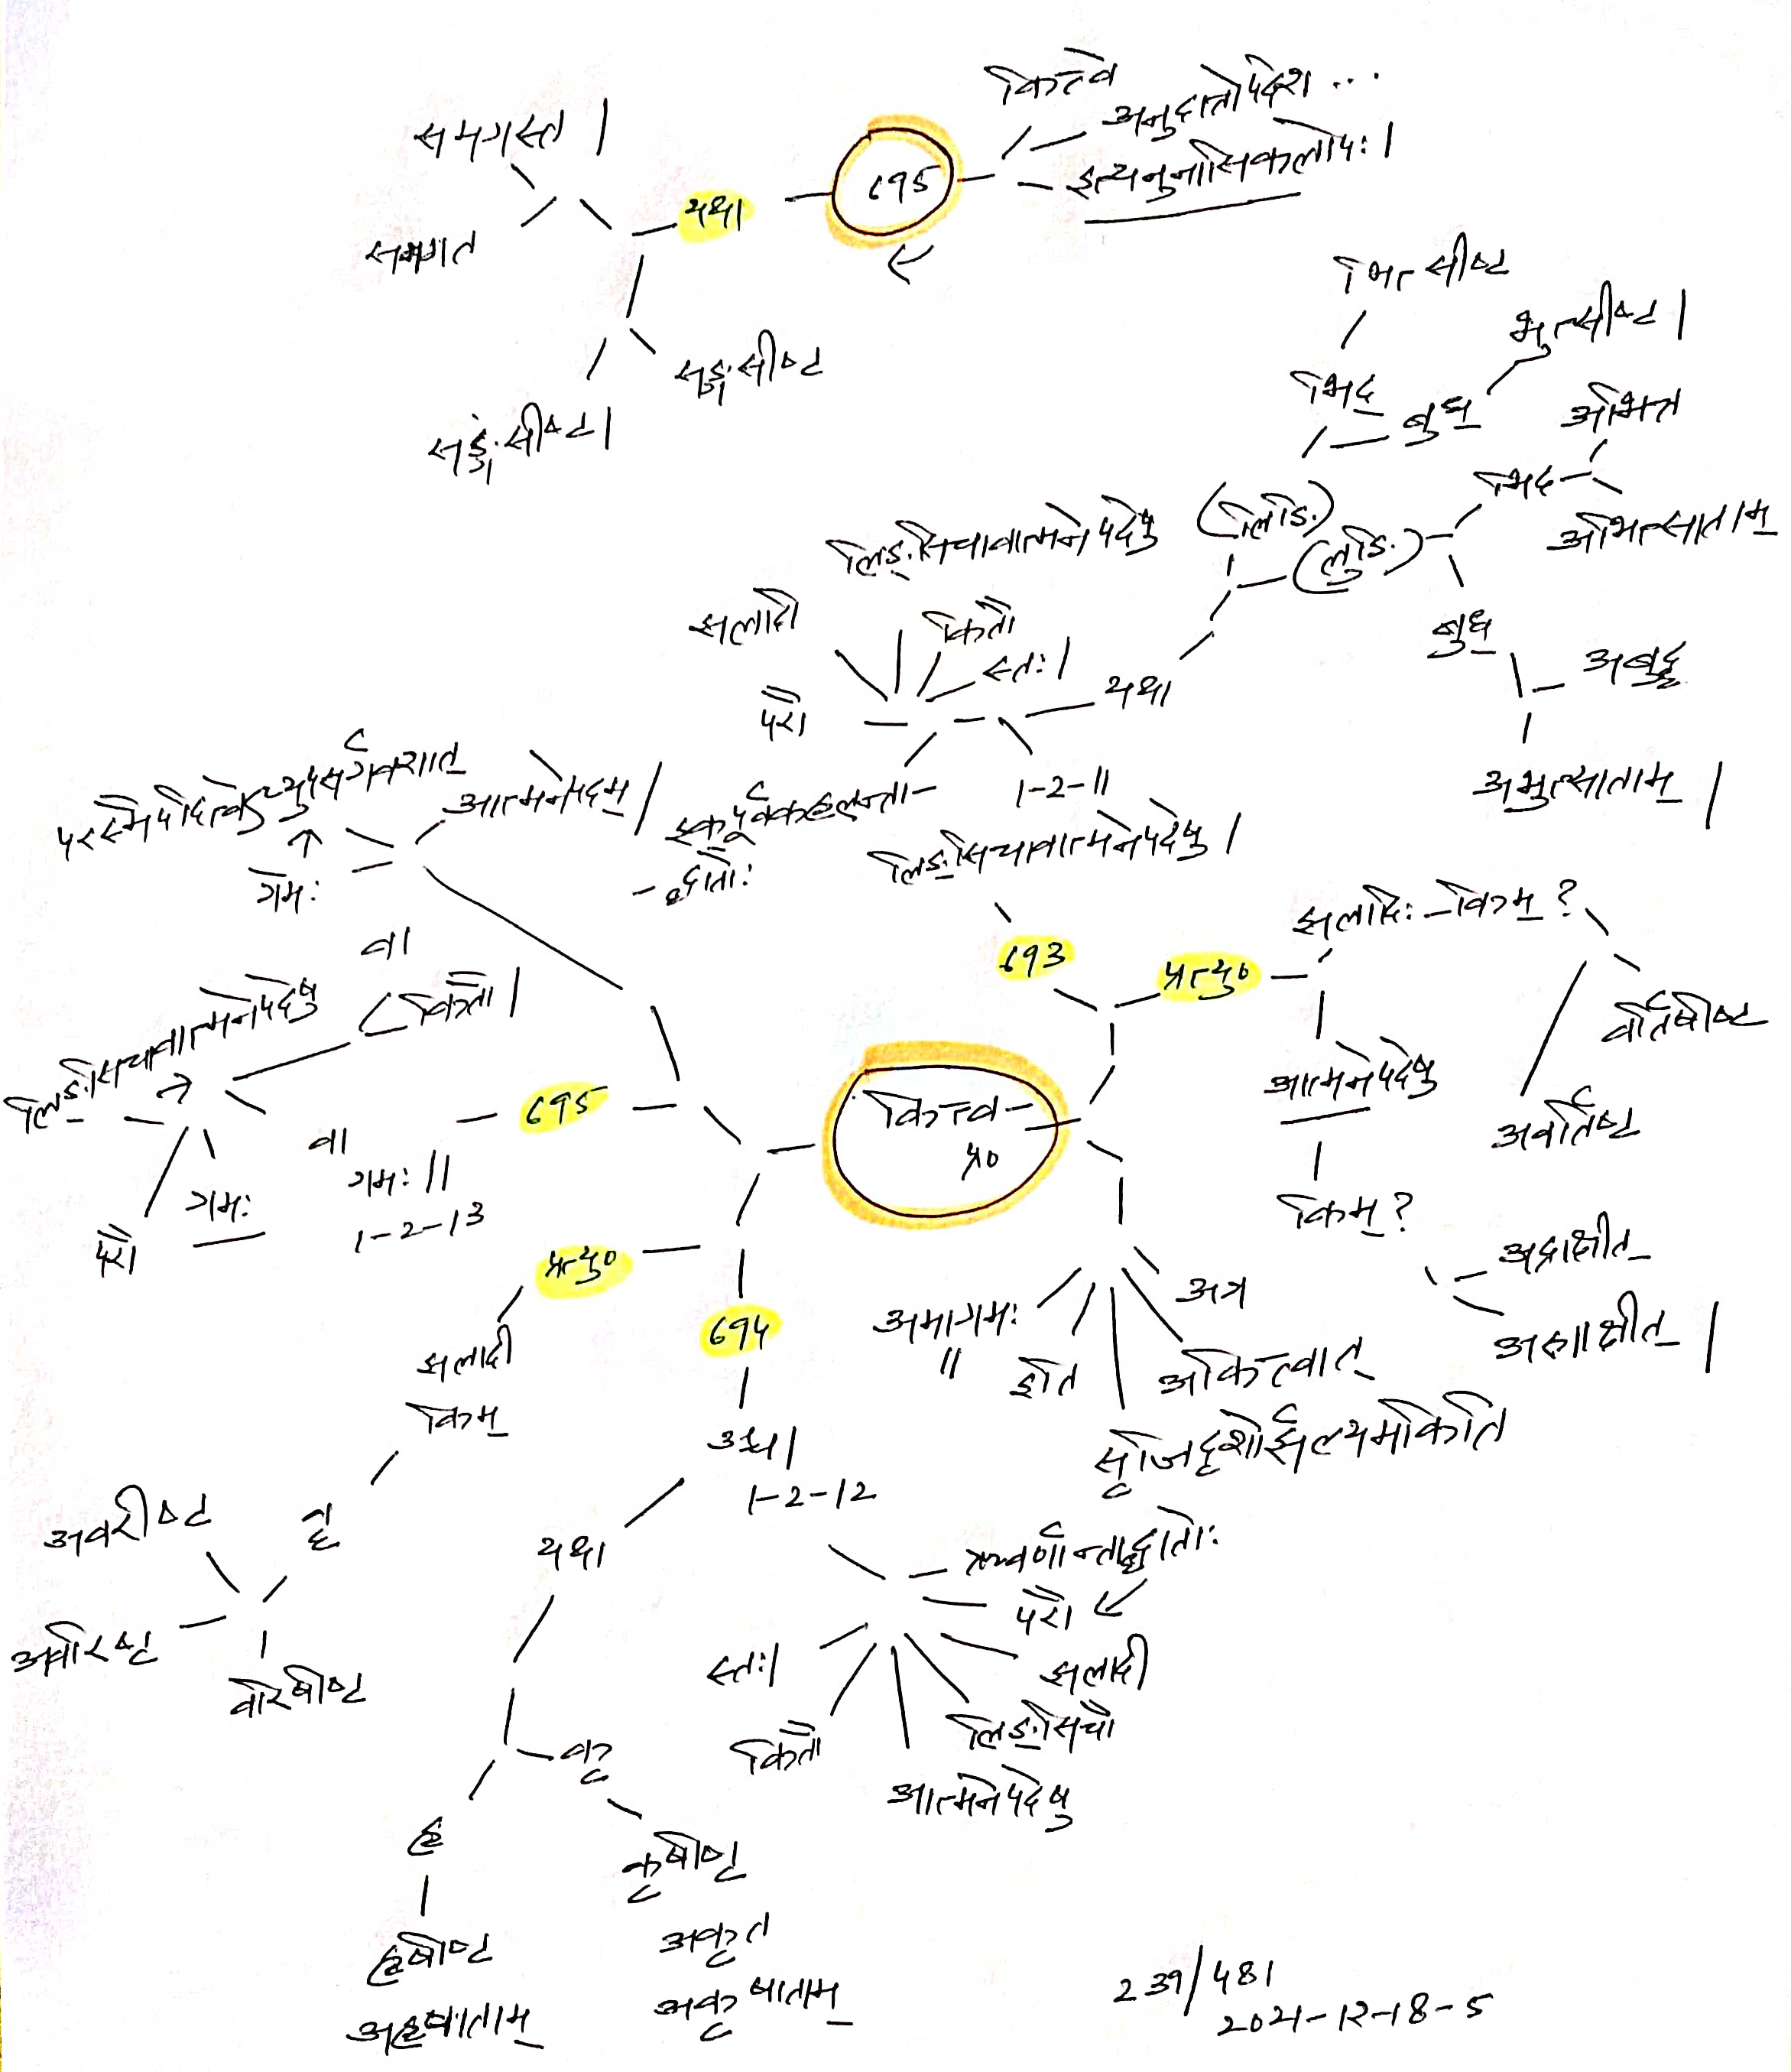 कित्त्व
समगस्त।
अनुदात्तोपदेश...
695
इत्यनुनासिकलोपः।
यथा
समगत
भित्सीष्ट
सङ्गसीष्ट
भुत्सीष्ट।
भिद्
बुध्
अभित्त
सङ्गंसीष्ट।
भिद्
(लिङि)
लिङ्सिचावात्मनेपदेषु
(लुङि)
अभित्साताम्
झलादौ
कितौ
स्तः।
बुध्
अबुद्ध
परौ
यथा
परस्मैपदित्वेऽप्युपसर्गवशात्
आत्मनेपदम्।
इक्पूर्वकहलन्ता-
1-2-11
अभुत्साताम्।
गमः
-द्धातोः
लिङ्सिचावात्मनेपदेषु।
झलादिः-किम्?
वा
693
प्रत्यु०
लिङ्सिचावात्मनेपदेषु
कितौ।
वर्तिषीष्ट
आत्मनेपदेषु
695
कित्त्व-
प्र०
अवर्तिष्ट
वा
गमः॥
गमः
1-2-13
परौ
किम्?
प्रत्यु०
अद्राक्षीत्
अत्र
अमागमः
॥
694
अस्राक्षीत्।
झलादी
इति
अकित्त्वात्
किम्
सृजिदृशोर्झल्यमकिति
उश्च।
1-2-12
अवरीष्ट
वृ
यथा
ऋवर्णान्ताद्धातोः
परौ
अवरिष्ट
वरिषीष्ट
स्तः।
झलादी
लिङ्सिचौ
कितौ
कृ
आत्मनेपदेषु
हृ
कृषीष्ट
हृषीष्ट
अकृत
अहृषाताम्
अकृषाताम्
239/481
2021-12-18-5